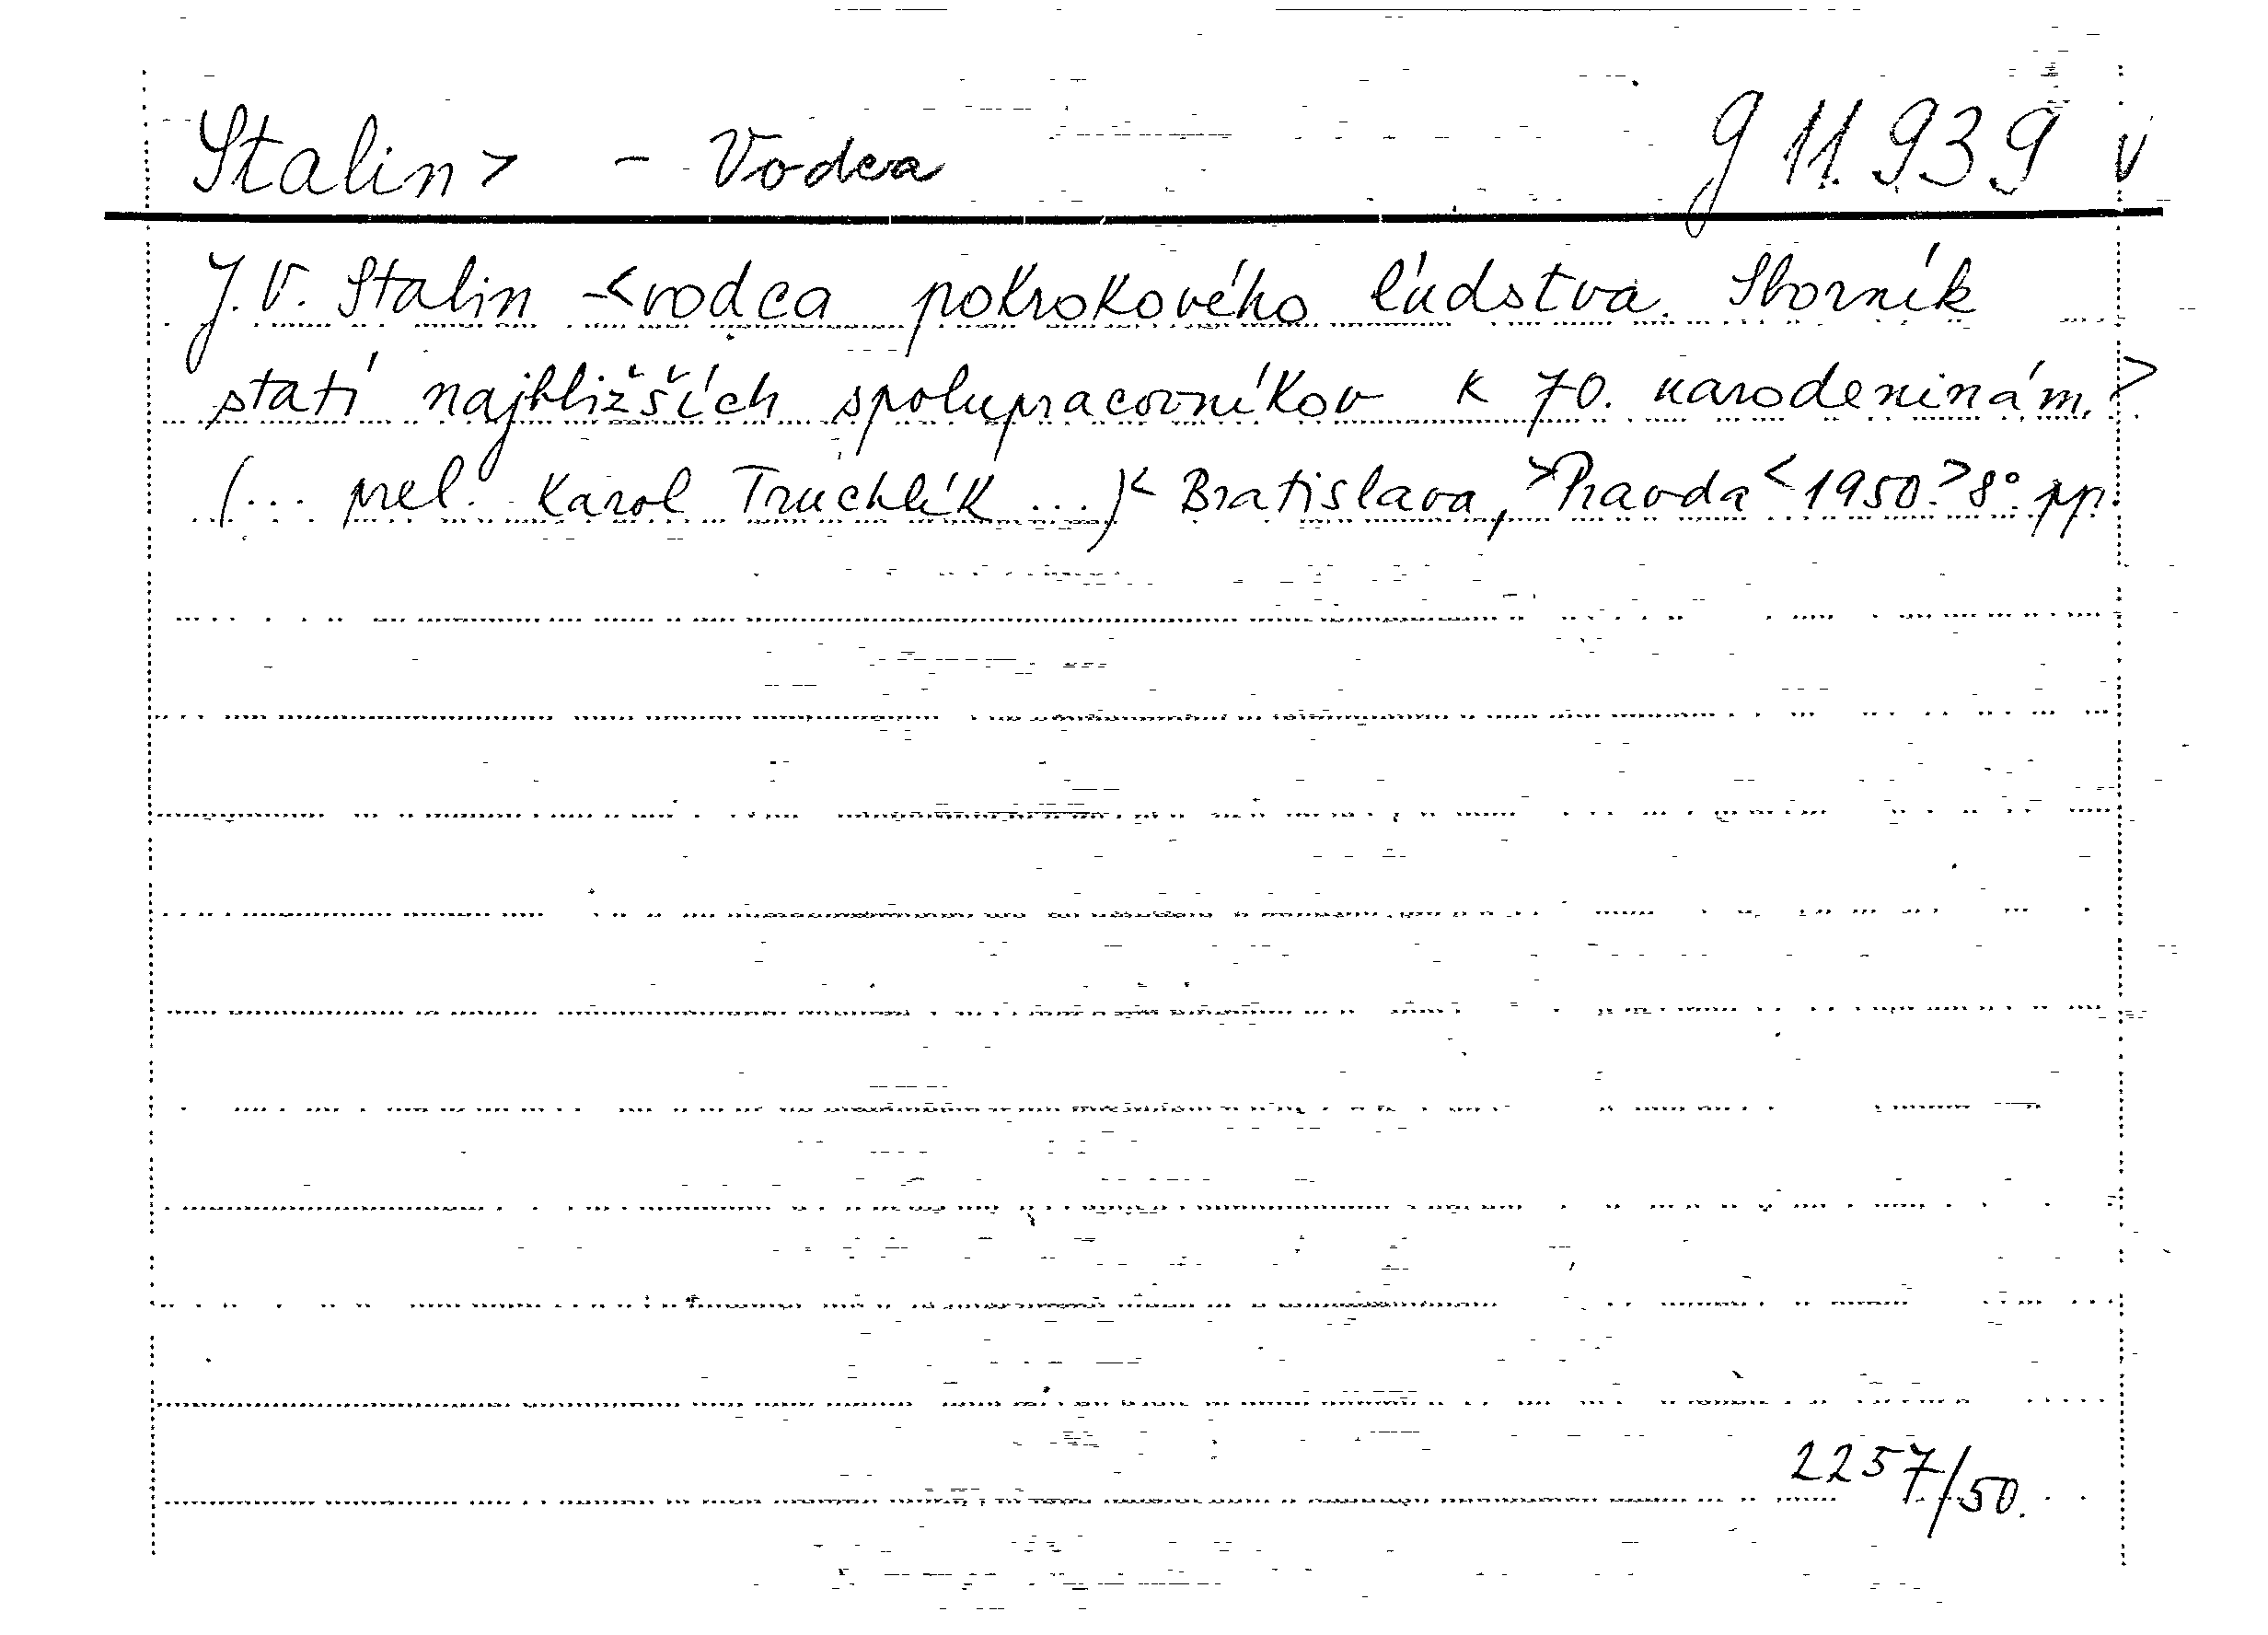 Stalin> - Vodca g 11.939 v
J. V. Stalin -<vodca pokrokového ľudstva. Sborník
statí najbližších spolupracovníkov k 70. narodeninám.>
(... prel. Karol Truchlík ...)< Bratislava, >Pravda< 1950.> 8°. pp.
2257/50.